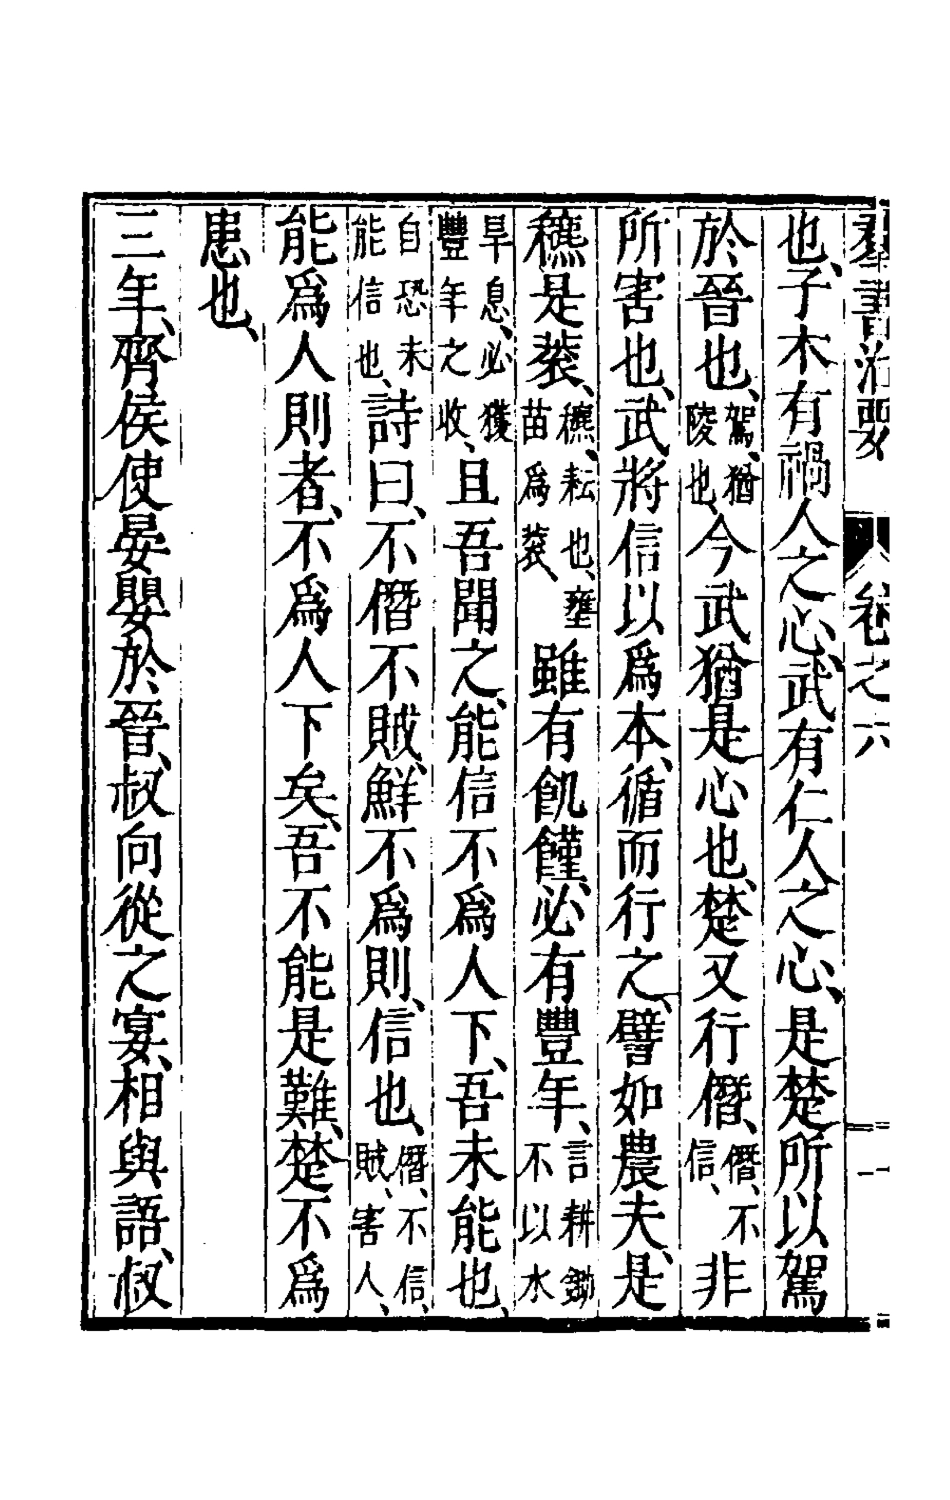 羣書治要 卷之六 二
也、子木有禍人之心、武有仁人之心、是楚所以駕
於晉也、駕、猶陵也、今武猶是心也、楚又行僭、僭、不信、非
所害也、武將信以爲本、循而行之、譬如農夫、是
穮是蔉、穮、耘也、壅苗爲蔉、雖有飢饉、必有豐年、言耕鋤不以水
旱息、必獲豐年之收、且吾聞之、能信不爲人下、吾未能也、
自恐未能信也、詩曰、不僭不賊、鮮不爲則、信也、僭、不信、賊、害人、
能爲人則者、不爲人下矣、吾不能是難、楚不爲
患也、
三年、齊侯使晏嬰於晉、叔向從之宴、相與語、叔